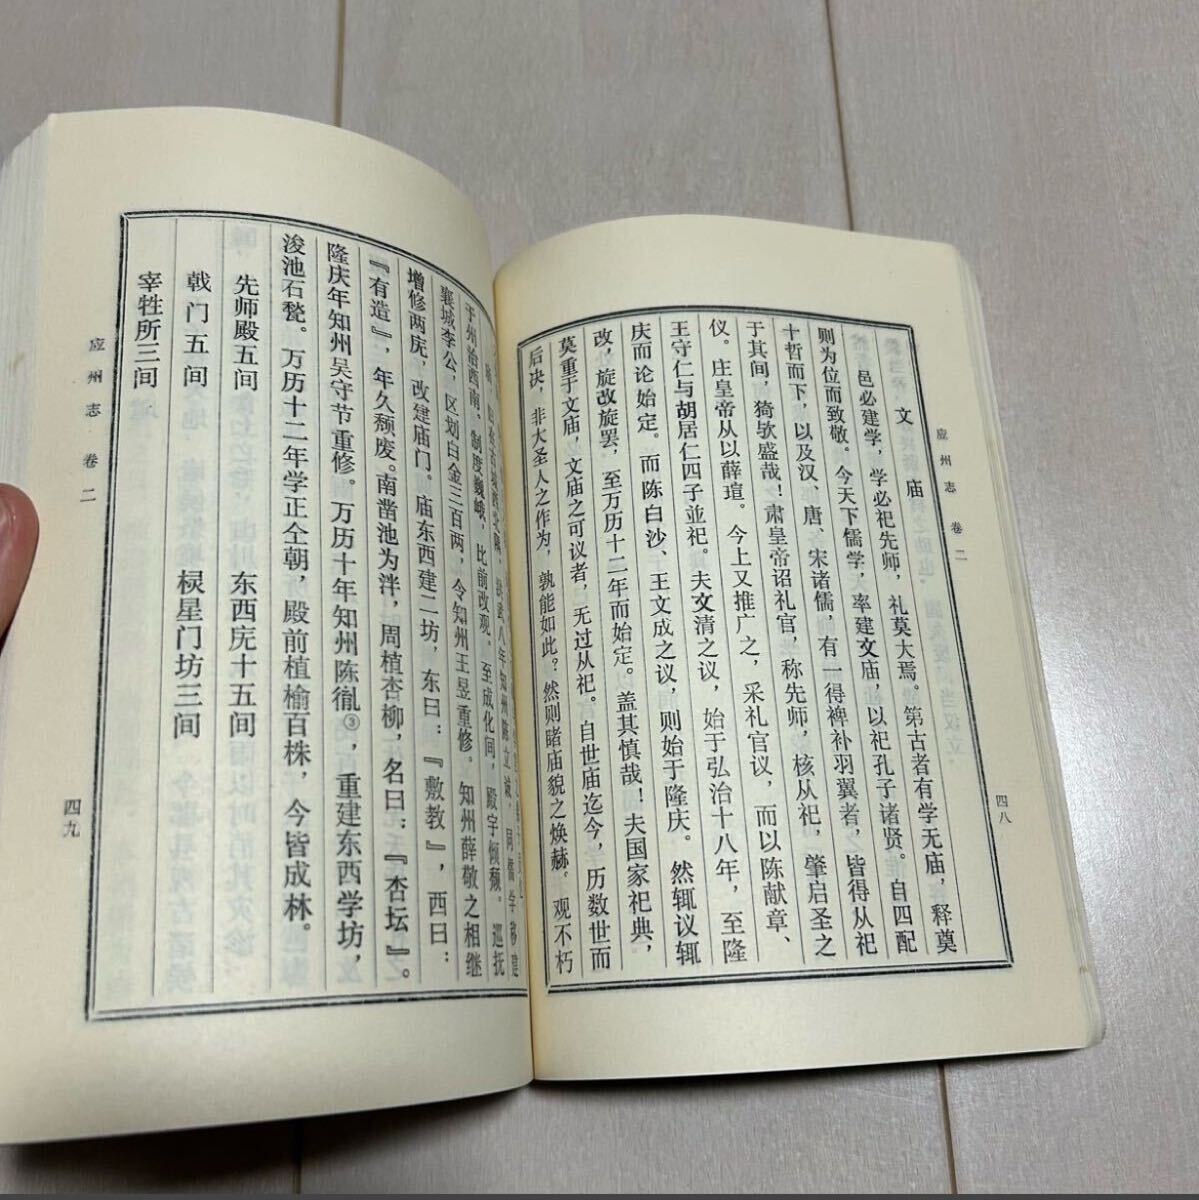 应州志 卷二
四八
文庙
邑必建学，学必祀先师，礼莫大焉。第古者有学无庙，释奠
则为位而致敬。今天下儒学，率建文庙，以祀孔子诸贤。自四配
十哲而下，以及汉、唐、宋诸儒，有一得裨补羽翼者，皆得从祀
于其间，猗欤盛哉！肃皇帝诏礼官，称先师，核从祀，肇启圣之
仪。庄皇帝从以薛瑄。今上又推广之，采礼官议，而以陈献章、
王守仁与胡居仁四子並祀。夫文清之议，始于弘治十八年，至隆
庆而论始定。而陈白沙、王文成之议，则始于隆庆。然辄议辄
改，旋改旋罢，至万历十二年而始定。盖其慎哉！夫国家祀典，
莫重于文庙，文庙之可议者，无过从祀。自世庙迄今，历数世而
后决，非大圣人之作为，孰能如此？然则睹庙貌之焕赫。观不朽
于州治西南。制度巍峨，比前改观。至成化间，殿宇倾颓。巡抚
襄城李公，区划白金三百两，令知州王昱重修。知州薛敬之相继
增修两庑，改建庙门。庙东西建二坊，东曰：『敷教』，西曰：
『有造』，年久颓废。南凿池为泮，周植杏柳，名曰：『杏坛』。
隆庆年知州吴守节重修。万历十年知州陈胤③，重建东西学坊，
浚池石甃。万历十二年学正仝朝，殿前植榆百株，今皆成林。
先师殿五间 东西庑十五间
戟门五间 棂星门坊三间
宰牲所三间
应州志·卷二
四九